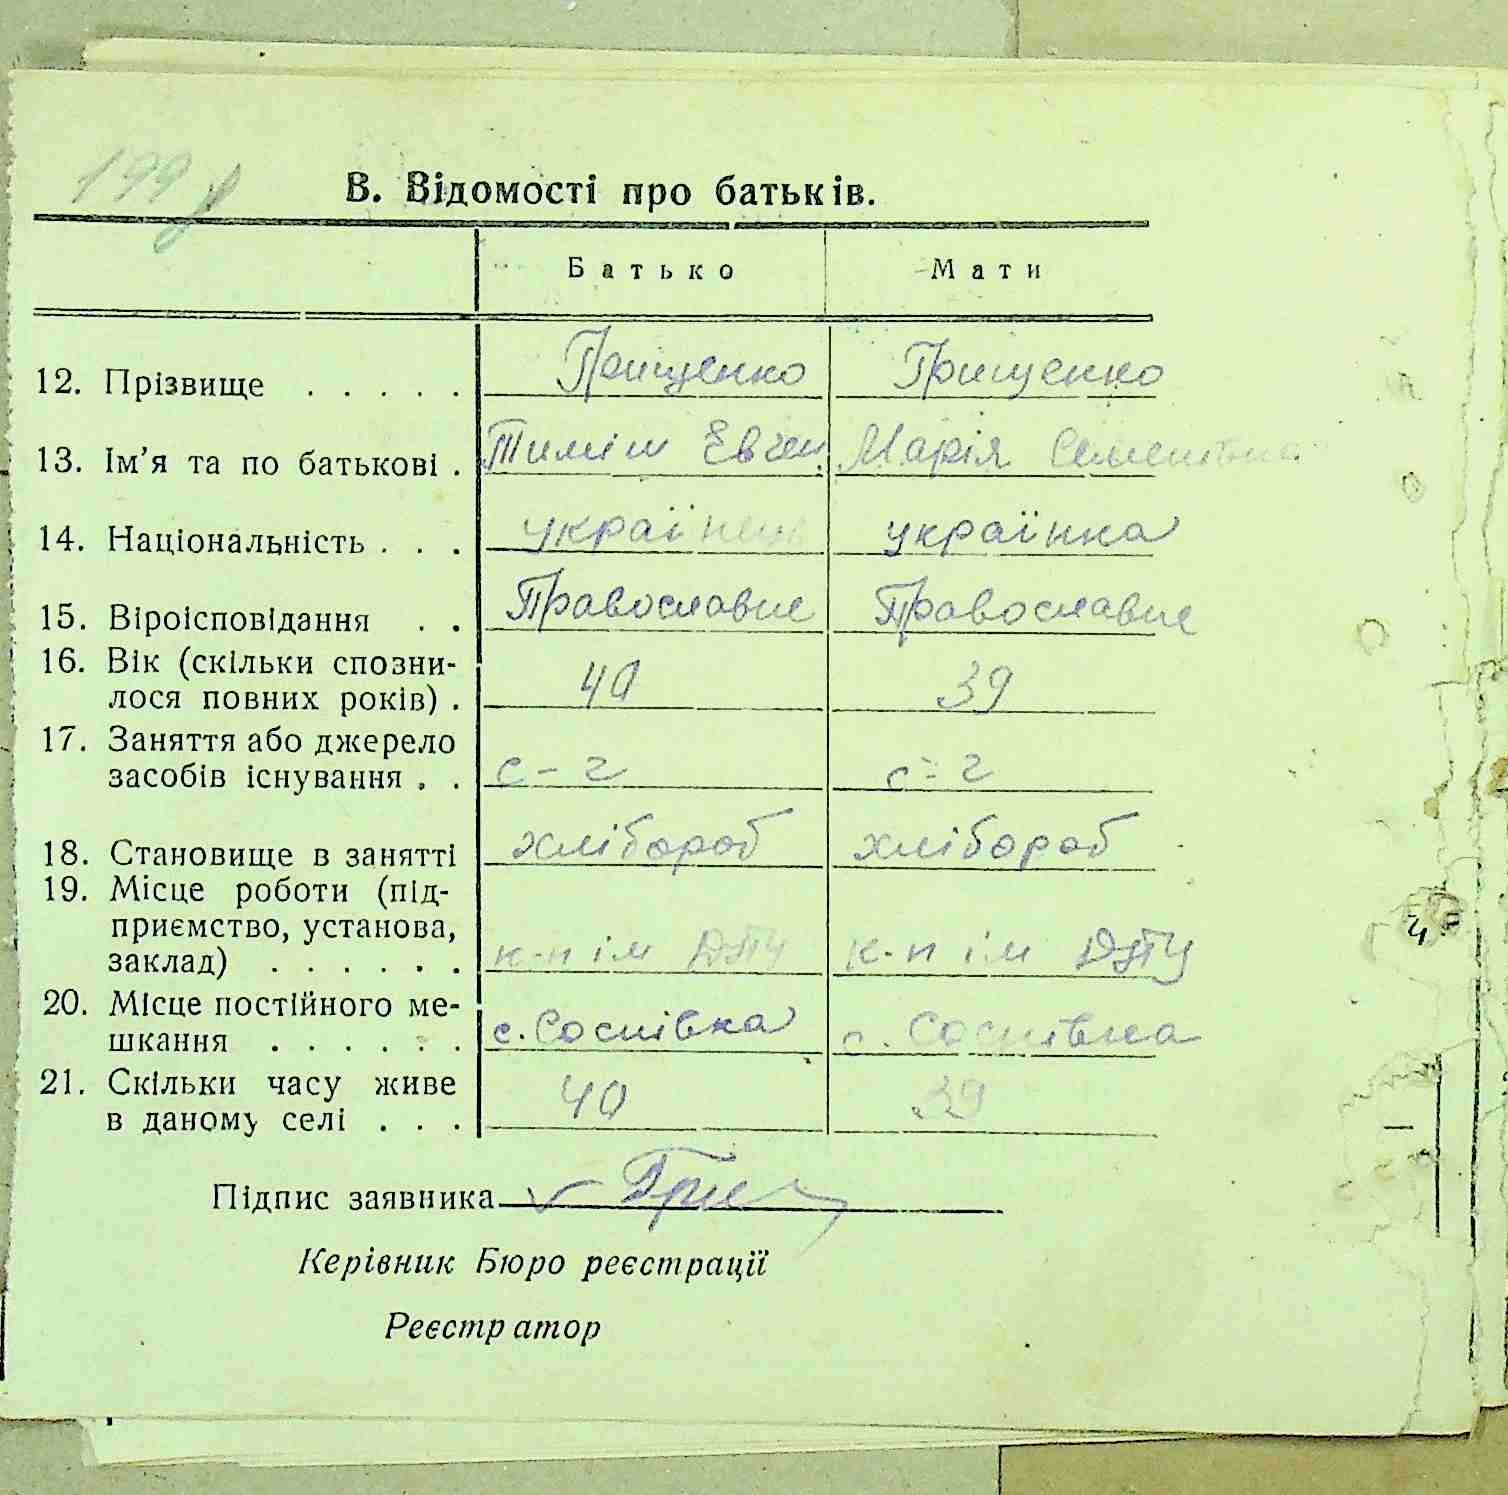 В. Відомості про батьків.
Батько Мати
12. Прізвище . . . . . Грищенко Грищенко
13. Ім'я та по батькові . Тиміш Євген. Марія Семенівна
14. Національність . . . українець українка
15. Віроісповідання . . Православне Православне
16. Вік (скільки спозни-
лося повних років) . 40 39
17. Заняття або джерело
засобів існування . . с-г с-г
18. Становище в занятті хлібороб хлібороб
19. Місце роботи (під-
приємство, установа,
заклад) . . . . . . к-п ім ДПУ к-п ім ДПУ
20. Місце постійного ме-
шкання . . . . . . с. Соснівка с. Соснівка
21. Скільки часу живе
в даному селі . . . 40 39
Підпис заявника Гри
Керівник Бюро реєстрації
Реєстратор